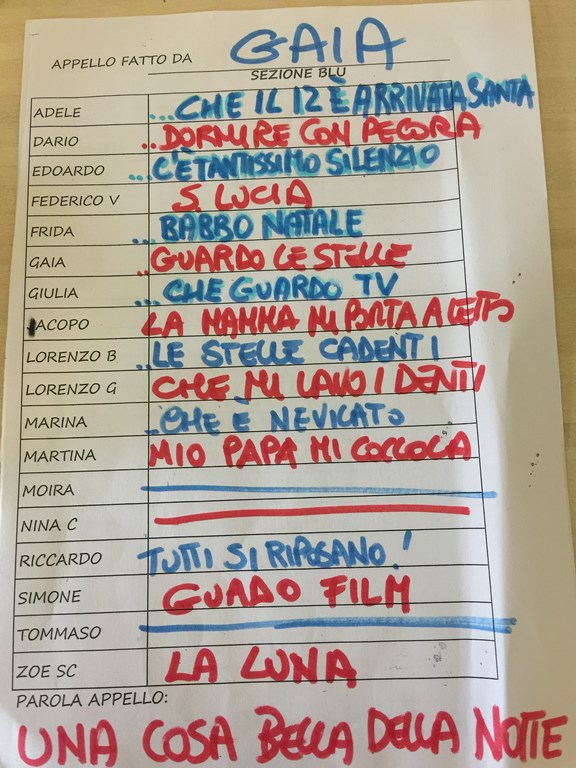 APPELLO FATTO DA GAIA
SEZIONE BLU
ADELE ...CHE IL 12 È ARRIVATA SANTA
DARIO ..DORMIRE CON PECORA
EDOARDO ...C'È TANTISSIMO SILENZIO
FEDERICO V S LUCIA
FRIDA ...BABBO NATALE
GAIA ..GUARDO LE STELLE
GIULIA ...CHE GUARDO TV
JACOPO LA MAMMA MI PORTA A LETTO
LORENZO B ..LE STELLE CADENTI
LORENZO G CHE MI LAVO I DENTI
MARINA ..CHE È NEVICATO
MARTINA MIO PAPA MI COCCOLA
MOIRA
NINA C
RICCARDO TUTTI SI RIPOSANO!
SIMONE GUADO FILM
TOMMASO
ZOE SC LA LUNA
PAROLA APPELLO:
UNA COSA BELLA DELLA NOTTE